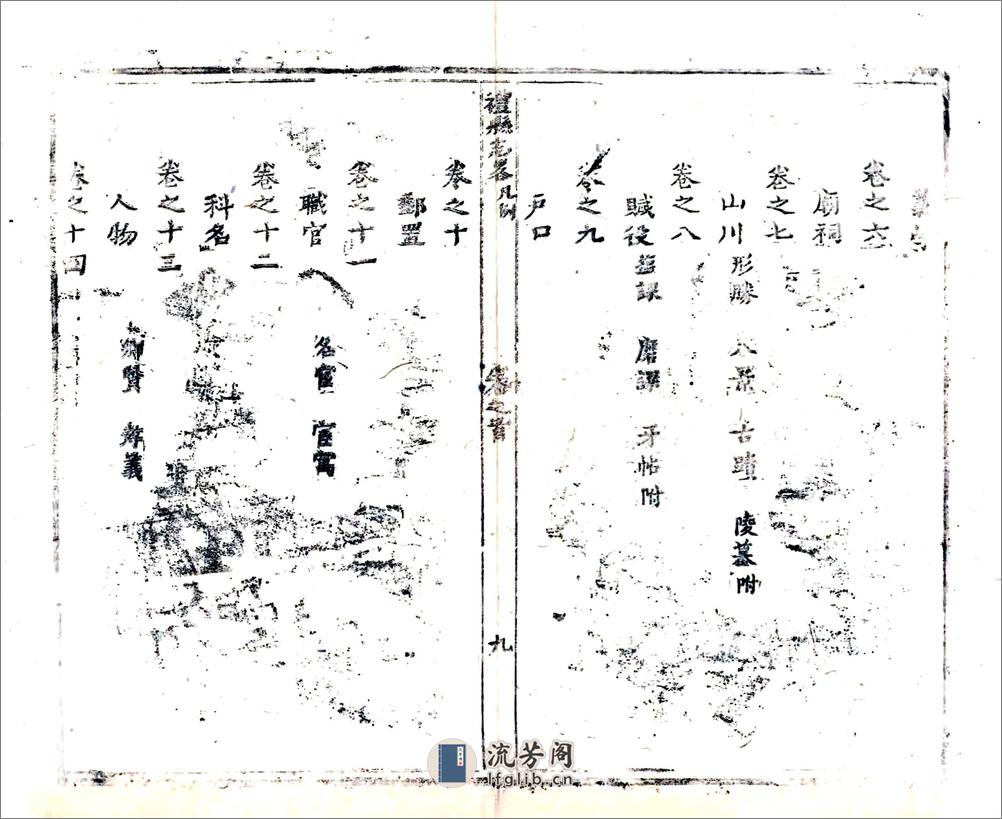 卷之六
廟祠
卷之七
山川 形勝 八景 古蹟 陵墓附
卷之八
賦役 鹽課 磨課 牙帖附
卷之九
戶口
禮縣志畧 凡例 卷之首 九
卷之十
郵置
卷之十一
職官 名宦 宦寓
卷之十二
科名
卷之十三
人物 鄉賢 孝義
卷之十四
流芳阁
lfglib.cn